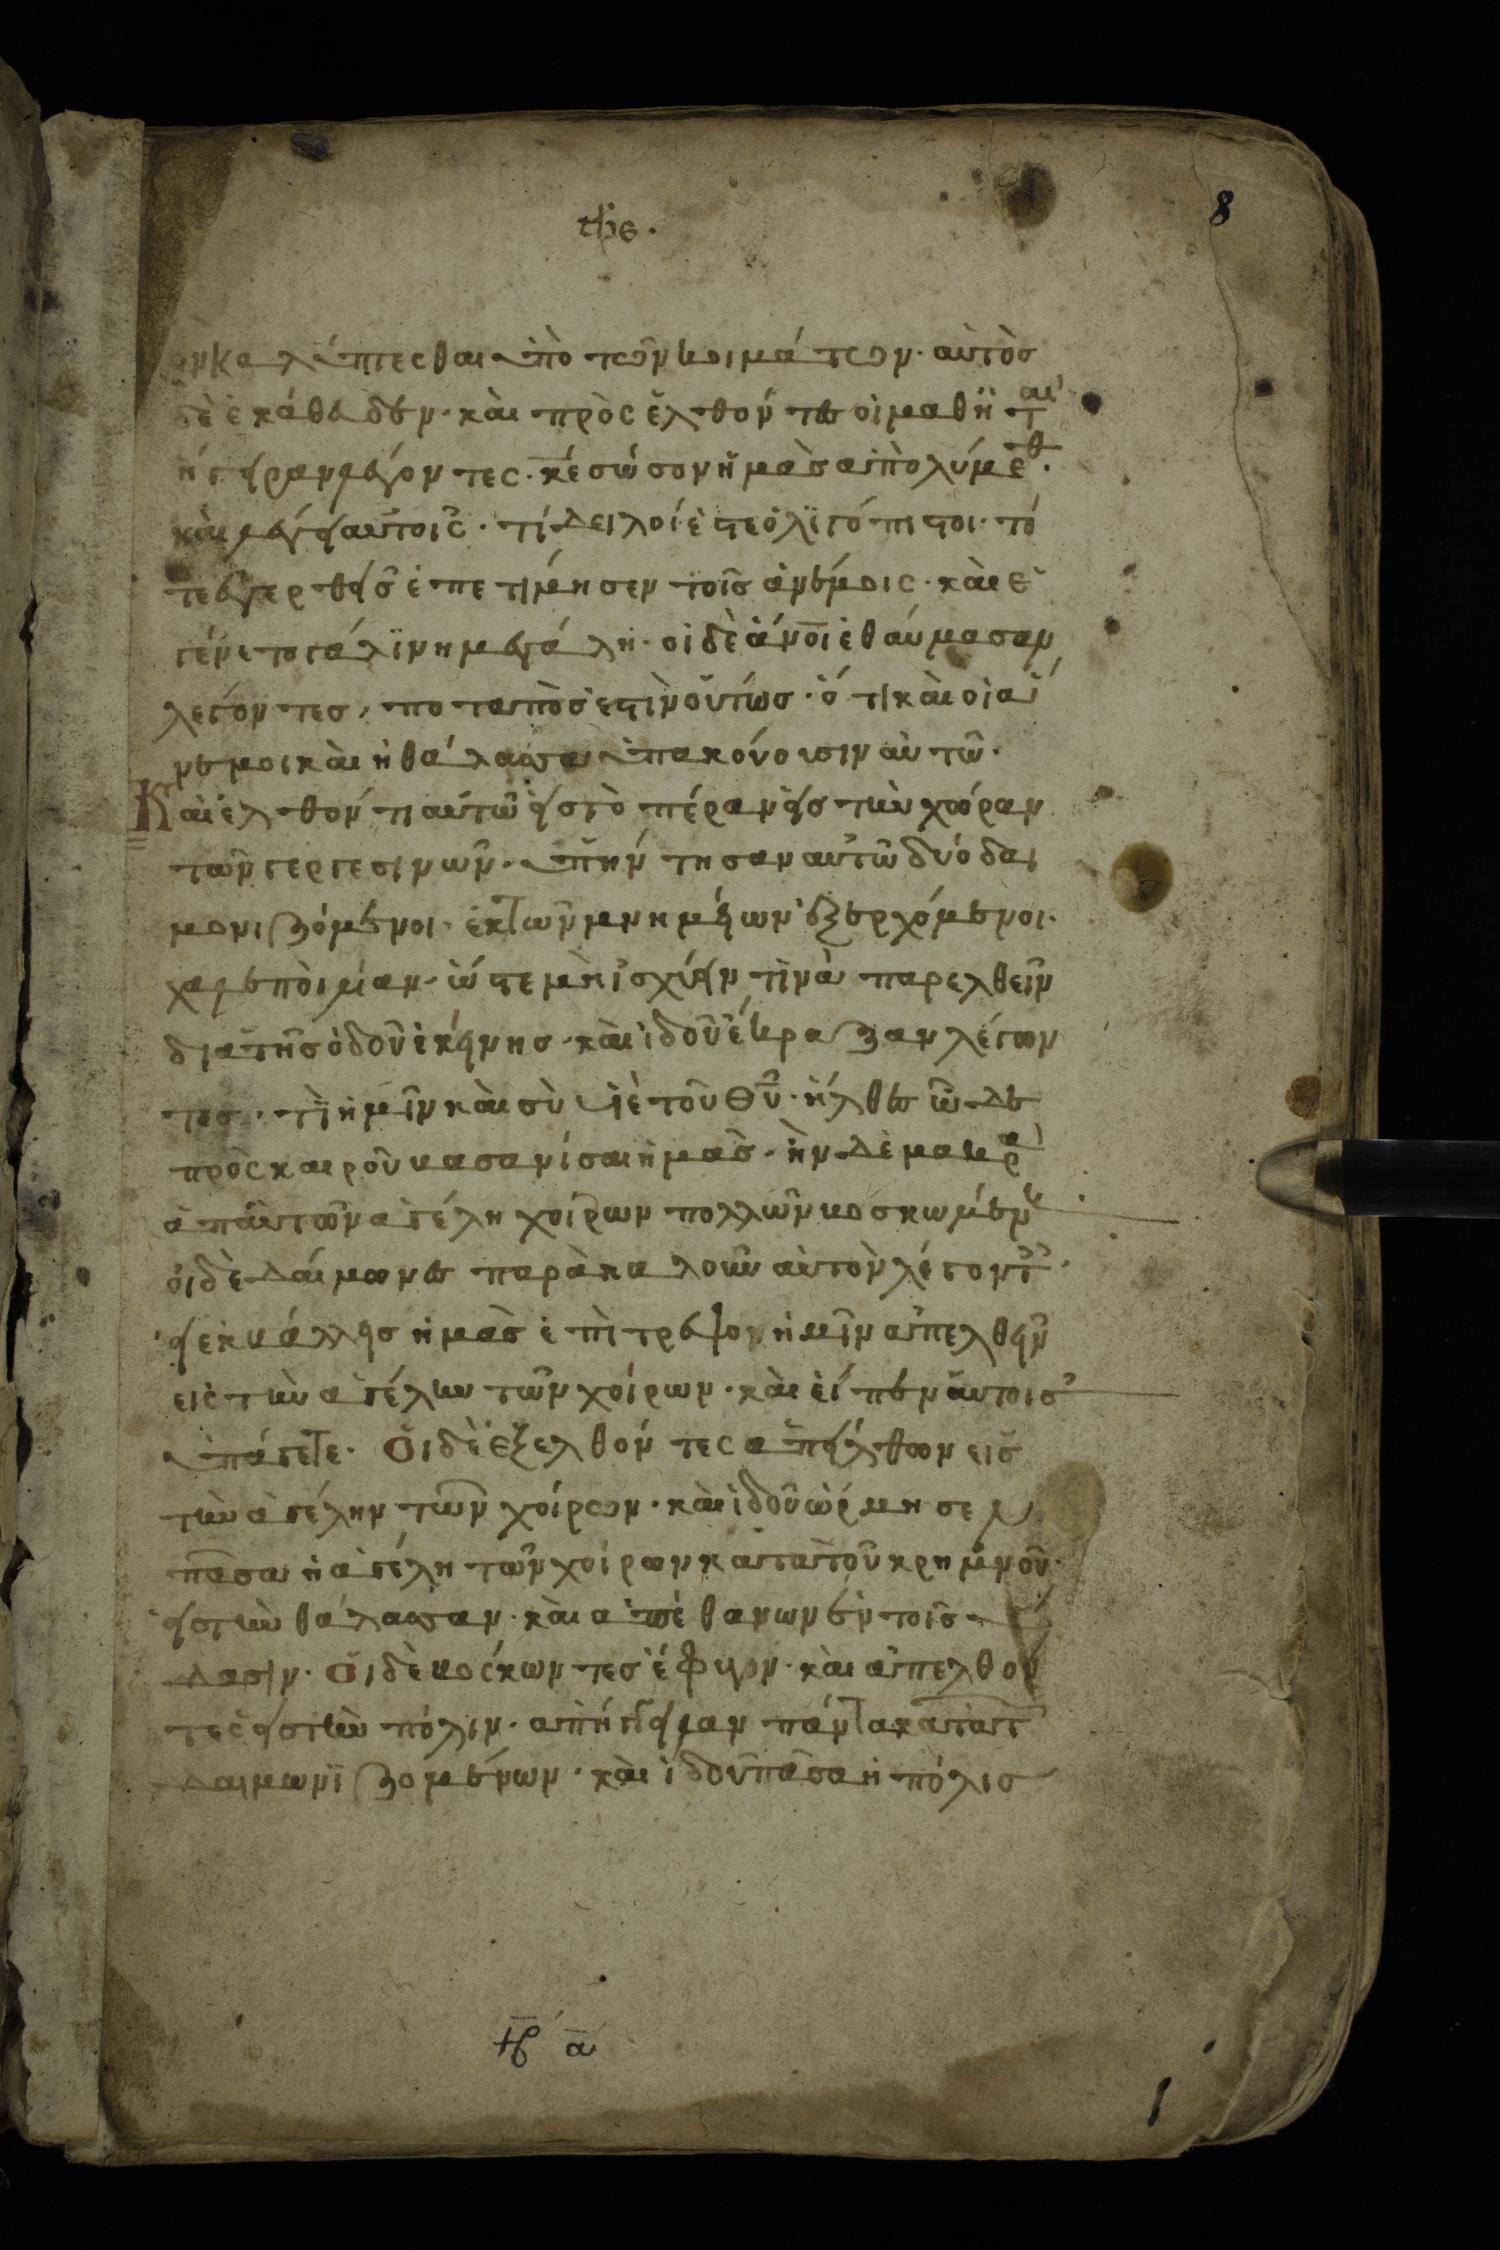 8
ον καλύπτεσθαι ὑπὸ τῶν κοιμάτων· αὐτὸσ
δὲ ἐκάθευδεν· καὶ πρὸς ἐλθόντες οἱ μαθηταὶ
ἤγειραν λέγοντες· κε σώσον ἡμὰσ ἀπολύμεθ·
καὶ λέγει αὐτοῖς· τί δειλοί ἐστε ὀλϊγόπιστοι· τό
τε ἐγερθεὶσ ἐπετήμησεν τοῖσ ἀνέμοις· καὶ ἐ
γένετο γαλϊνη μεγάλη· οἱ δὲ ἄνοι ἐθαύμασαν
λέγοντεσ, ποταπὸσ ἐστὶν οὔτωσ· ὁ τι καὶ οἱ ἀ
νεμοι καὶ ἡ θάλασσα ὑπακούουσιν αὐτῶ·
Καὶ ἐλθόντι αὐτῶ εἰσ τὸ πέραν εἰσ τὴν χώραν
τῶν γεργεσινῶν· ὑπήντησαν αὐτῶ δυό δαι
μονιζόμενοι· ἐκ τῶν μνημείων ἐξερχόμενοι·
χαλεποὶ λίαν· ὥστε μὴ ἰσχύειν τινὰ παρελθεῖν
διὰ τῆσ ὁδοῦ ἐκείνησ· καὶ ἰδοῦ ἔκραζαν λέγων
τεσ· τὶ ἡμῖν καὶ σὺ υἱὲ τοῦ θυ· ἤλθεσ ὧδε
πρὸς καιροῦ βασανίσαι ἡμᾶσ· ἦν δὲ μακρὰ
ἀπ' αὐτῶν ἀγέλη χοίρων πολλῶν βοσκωμέν
οἱ δὲ δαίμωνεσ παρὰκαλοῦν αὐτὸν λέγοντ·
εἰ ἐκβάλλεισ ἡμὰσ ἐπίτρεψον ἡμῖν ἀπελθεῖν
εἰς τὴν ἀγέλην τῶν χοίρων· καὶ εἶπεν αὐτοισ
ὑπάγετε· Οἱ δὲ ἐξελθόντες ἀπῆλθων εἰσ
τὴν ἀγέλην τῶν χοίρων· καὶ ἰδοῦ ὥρμησεν
πᾶσα ἡ ἀγέλη τῶν χοίρων κατὰ τοῦ κρημνοῦ·
εἰσ τὴν θάλασσαν· καὶ ἀπέθανων ἐν τοῖσ ὕ
δασιν· Οἱ δὲ βοςκωντεσ ἔφυγον· καὶ ἀπελθόν
τες εἰσ τὴν πόλιν· ἀπήγγειλαν πάντα κατὰ τ
δαιμωνϊζομένων· καὶ ἰδοῦ πᾶσα ἡ πόλισ